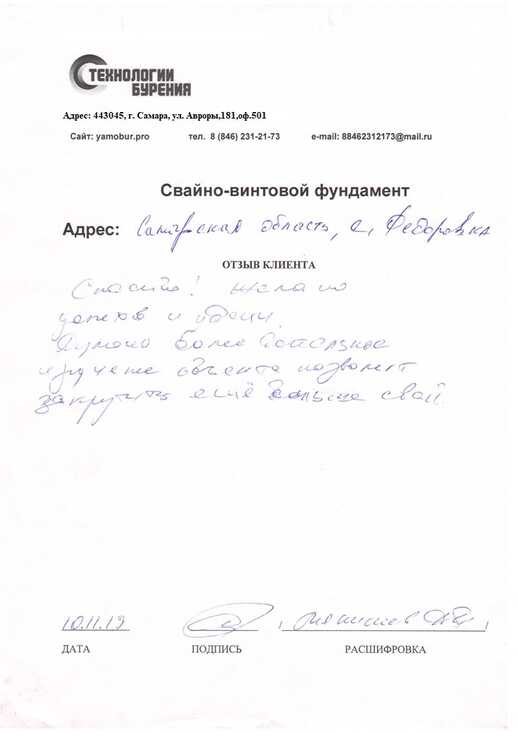 ТЕХНОЛОГИИ
БУРЕНИЯ
Адрес: 443045, г. Самара, ул. Авроры,181,оф.501
Сайт: yamobur.pro тел. 8 (846) 231-21-73 e-mail: 88462312173@mail.ru
Свайно-винтовой фундамент
Адрес: Самарская область, с, Федоровка
ОТЗЫВ КЛИЕНТА
Спасибо! Желаю
успехов и удачи.
Думаю более детальное
изучение объекта позволит
закрутить ещё больше свай.
10.11.19
ДАТА ПОДПИСЬ РАСШИФРОВКА